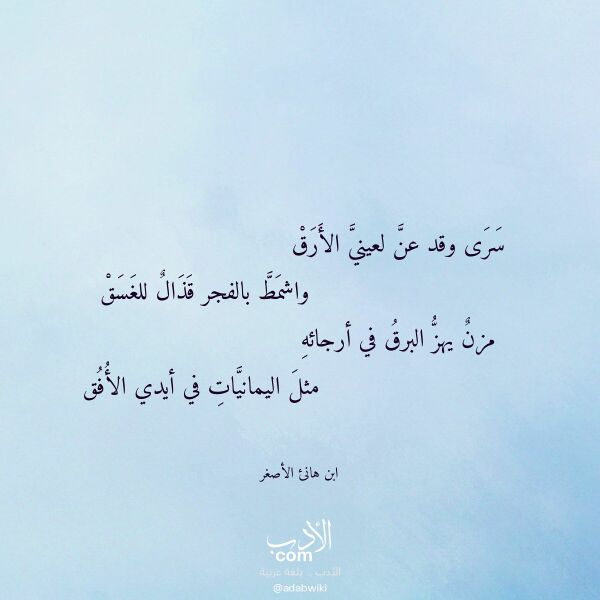 سَرَى وقد عنَّ لعينيَّ الأَرَقْ
واشمَطَّ بالفجر قَذَالٌ للغَسَقْ
مزنٌ يهزُّ البرقُ في أرجائهِ
مثلَ اليمانيَّاتِ في أيدي الأُفُق
ابن هانئ الأصغر
الأدب
com
الأدب .. بلغة عربية
@adabwiki